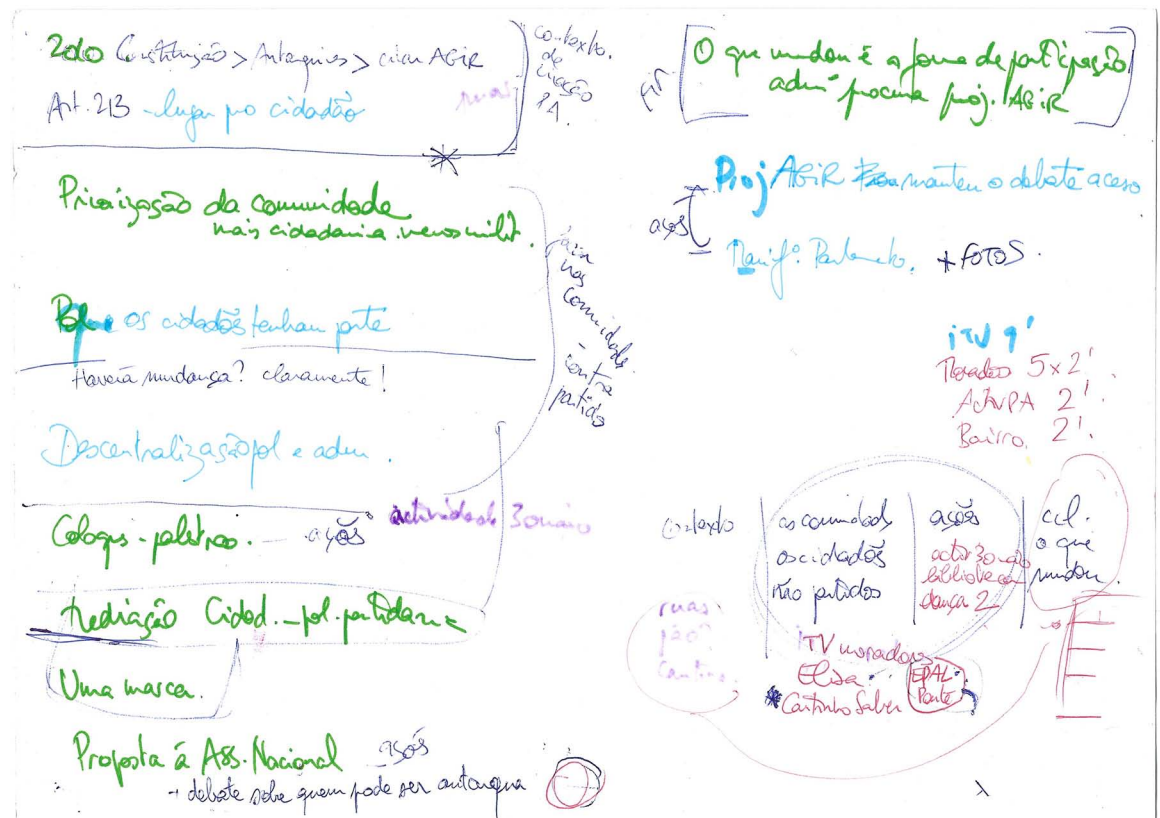 2010 Constituição > Autarquias > criar AGIR
Art. 213 - lugar po cidadão
ruas
contexto.
de
criação
PA.
Priorização da comunidade
mais cidadania. menos milit.
agir
nas
comunidades.
contra
partido
Que os cidadãos tenham pte
Haverá mudança? claramente!
Descentralização pol e adm.
Coloquis - palestras. — ações
actividade 30 maio
Mediação Cidad. - pol. partidária
Uma marca.
Proposta á Ass. Nacional ações
debate sobre quem pode ser autarqua
Fin
O que mudou é a forma de participação
adm procura proj. AGIR
Proj AGIR manteu o debate aceso
ações
Manifº. Parlamento. + FOTOS.
iTV 9'
Morados 5x2'.
ActvPA 2'.
Bairro. 2'.
contexto
as comunidads
os cidadãos
não partidos
ações
activ 30 maio
biblioteca
dança 2
ccl.
o que
mudou.
ruas
pão
cantina.
iTV moradores
Elisa.
* Cantinho Saber
EPAL.
Ponte